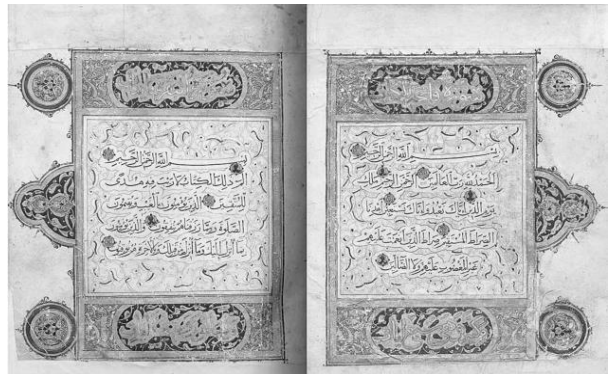 بسم الله الرحمن الرحيم
الحمد لله رب العالمين الرحمن الرحيم ملك
يوم الدين اياك نعبد واياك نستعين اهدنا
الصراط المستقيم صراط الذين انعمت عليهم
غير المغضوب عليهم ولا الضالين
بسم الله الرحمن الرحيم
الم ذلك الكتاب لا ريب فيه هدى
للمتقين الذين يؤمنون بالغيب ويقيمون
الصلوة ومما رزقناهم ينفقون والذين يؤمنون
بما انزل اليك وما انزل من قبلك وبالاخرة هم يوقنون